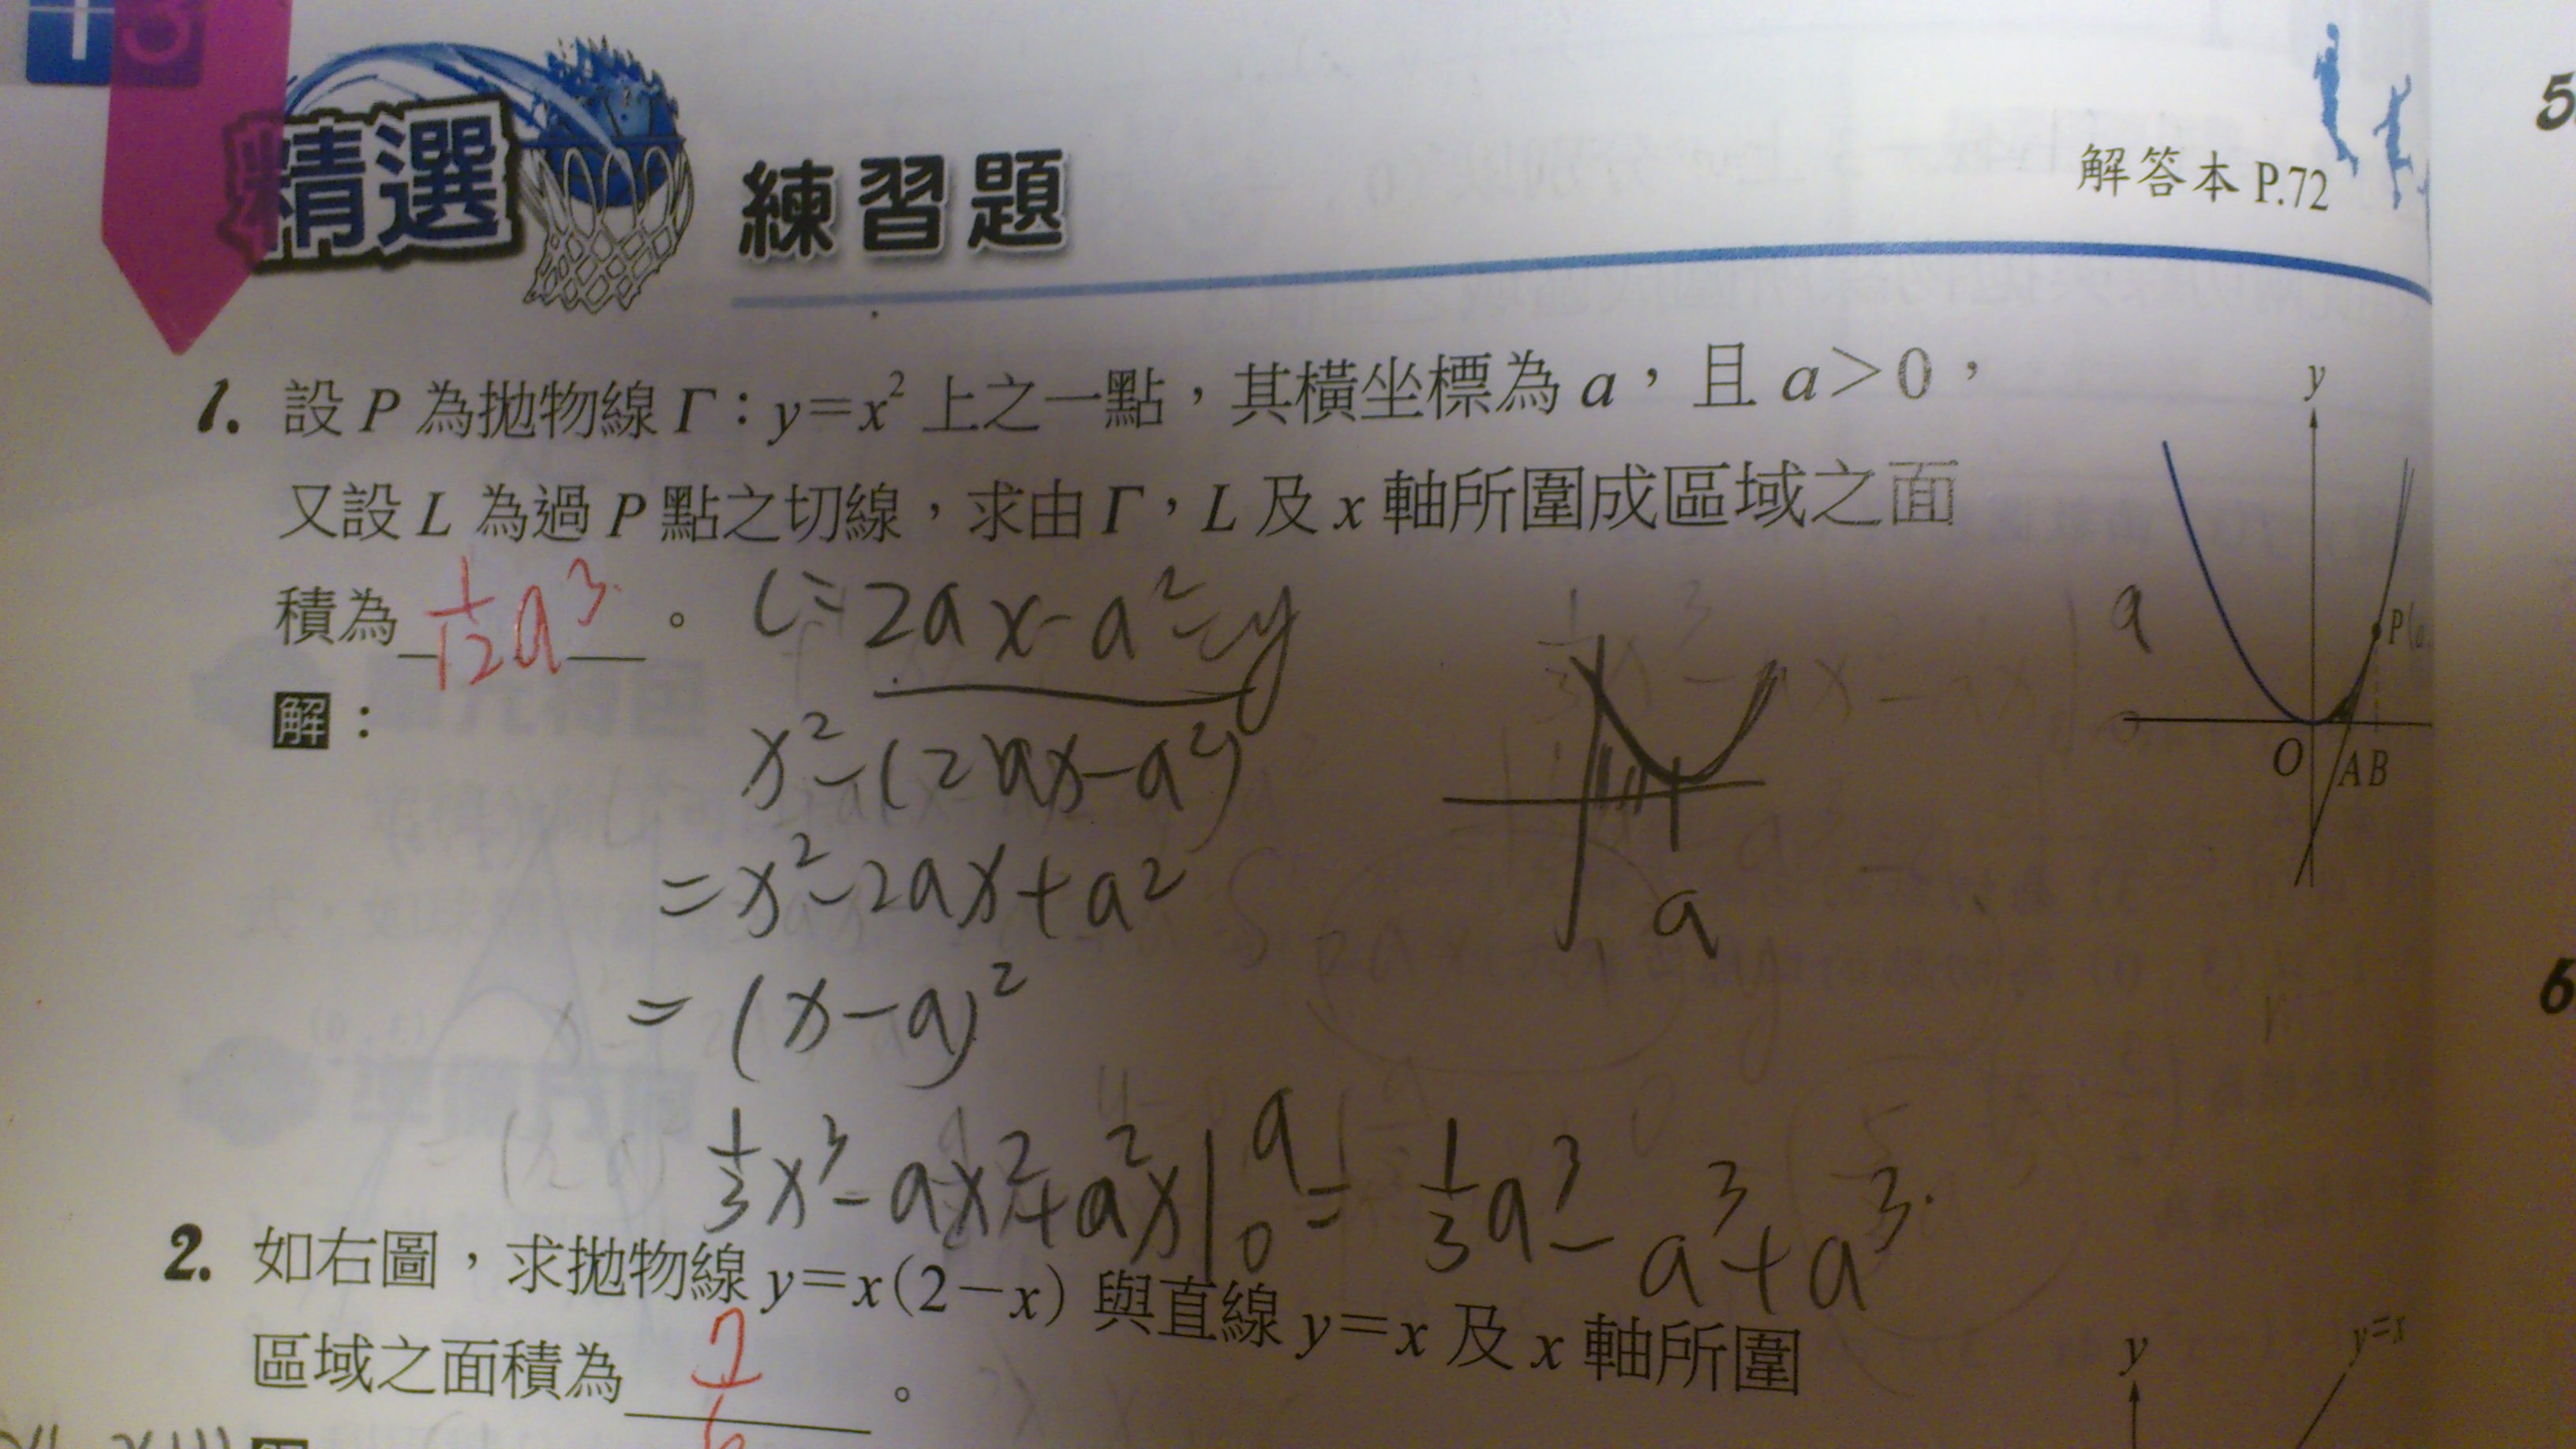 精選 練習題
解答本 P.72
5.
1. 設 P 為拋物線 Γ：y=x² 上之一點，其橫坐標為 a，且 a>0，
又設 L 為過 P 點之切線，求由 Γ，L 及 x 軸所圍成區域之面
積為 1/12 a³ 。 L= 2ax-a²=y
解：
x²-(2ax-a²)
=x²-2ax+a²
=(x-a)²
1/3x³-ax²+a²x|₀ᵃ= 1/3a³-a³+a³
a
y
a
P(a
O A B
6
2. 如右圖，求拋物線 y=x(2-x) 與直線 y=x 及 x 軸所圍
區域之面積為 7/6 。
y
y=x